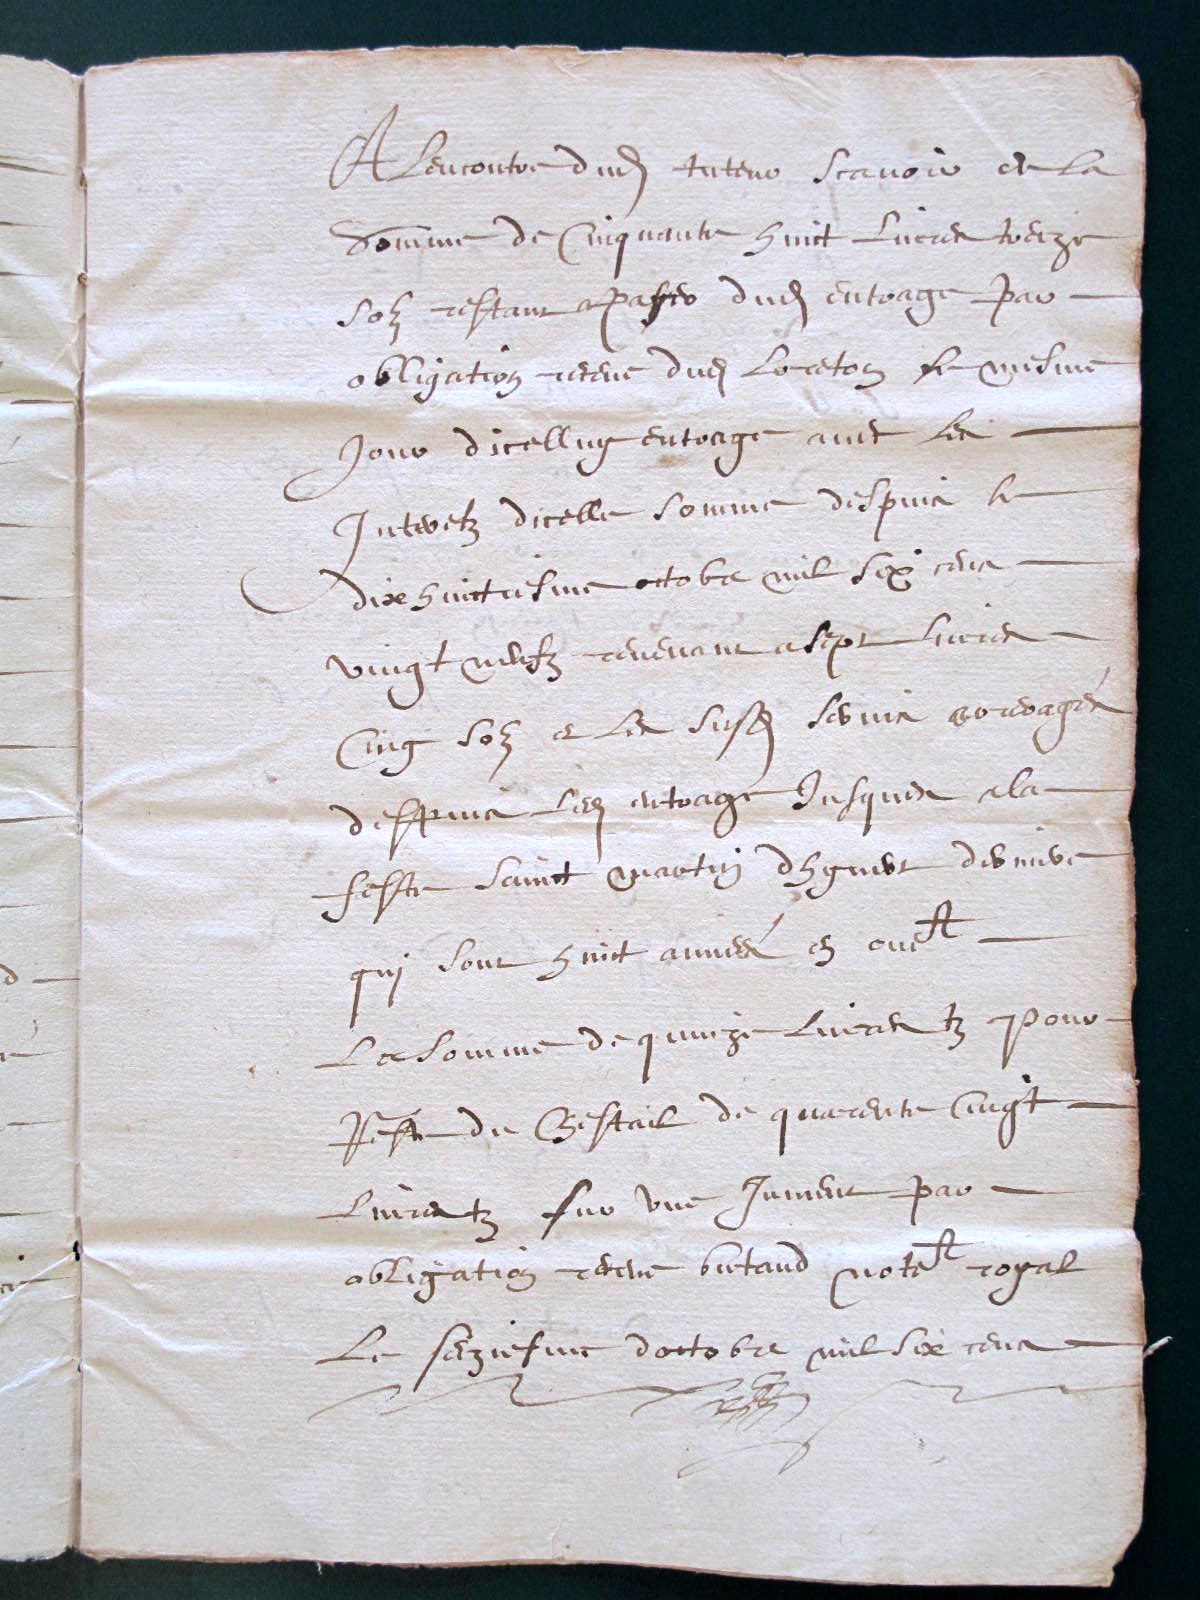 A lencontre dud tuteur scavoir de la
Somme de Cinquante huict Livres treize
solz restant a paier dud entrage par
obligation receue dud Loreton le mesme
Jour dicelluy entrage avec les
Interetz dicelle somme despuis le
dixhuictiesme octobre mil six cens
vingt neufz revenant a sept Livres
Cinq solz et les susd servis
despuis led entrage Jusques a la
feste sainct martin dhyvert derniere
qui sont huict années en
La somme de quinze Livres tz Pour
Reste de Bestail de quarente Cingt
Livres tz sur une Jument par
obligation receue butaud note re royal
Le seziesme doctobre mil six cens